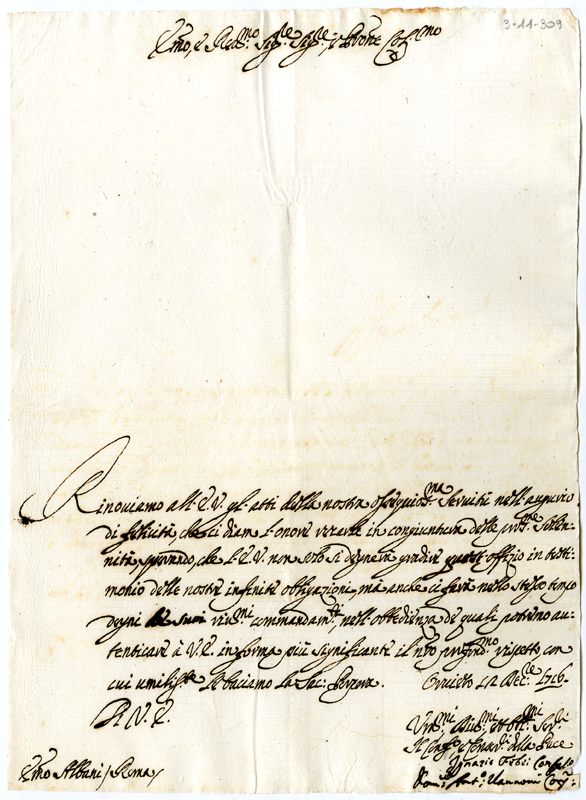 3-11-309
Emo, e Revmo. Sigre. Sigre., e Prone Colmo
Rinoviamo all'E.V. gl'atti della nostra ossequiosma. Servitù nell'augurio
di felicità, che ci diam l'onore recarle in congiuntura delle pnti Solen-
nità, sperando, che l'E.V. non solo si degnerà gradire questo offizio in testi-
monio delle nostre infinite obligazioni, mà anche ci farà nello stesso tempo
degni de suoi rivmi. commandamti, nell'obbedienza de quali potremo au-
tenticare à V.E. in forma più significante il nro profondmo. rispetto con
cui umilmte. le baciamo la Sac: Porpora. Orvieto 12 Xbre. 1716.
D.V.E.
Vmi. Dmi. et Obmi. Servi.
Il Confro. e Conserri. della Pace
Ignazio Febei Confalo
Emo Albani / Roma /
Dom: Anto: Vannoni Conr: